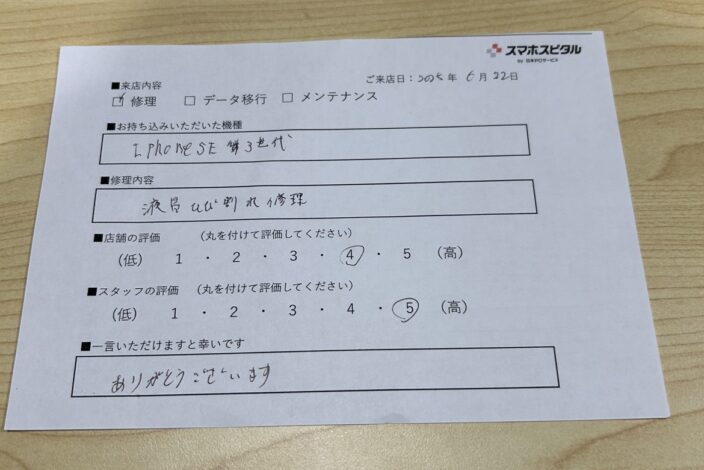 スマホスピタル
by 日本PCサービス
ご来店日：2025年 6月 22日
■来店内容
☑ 修理 □ データ移行 □ メンテナンス
■お持ち込みいただいた機種
IPhoneSE 第3世代
■修理内容
液晶ひび割れ修理
■店舗の評価 （丸を付けて評価してください）
（低） 1 ・ 2 ・ 3 ・ 4 ・ 5 （高）
■スタッフの評価 （丸を付けて評価してください）
（低） 1 ・ 2 ・ 3 ・ 4 ・ 5 （高）
■一言いただけますと幸いです
ありがとうございます